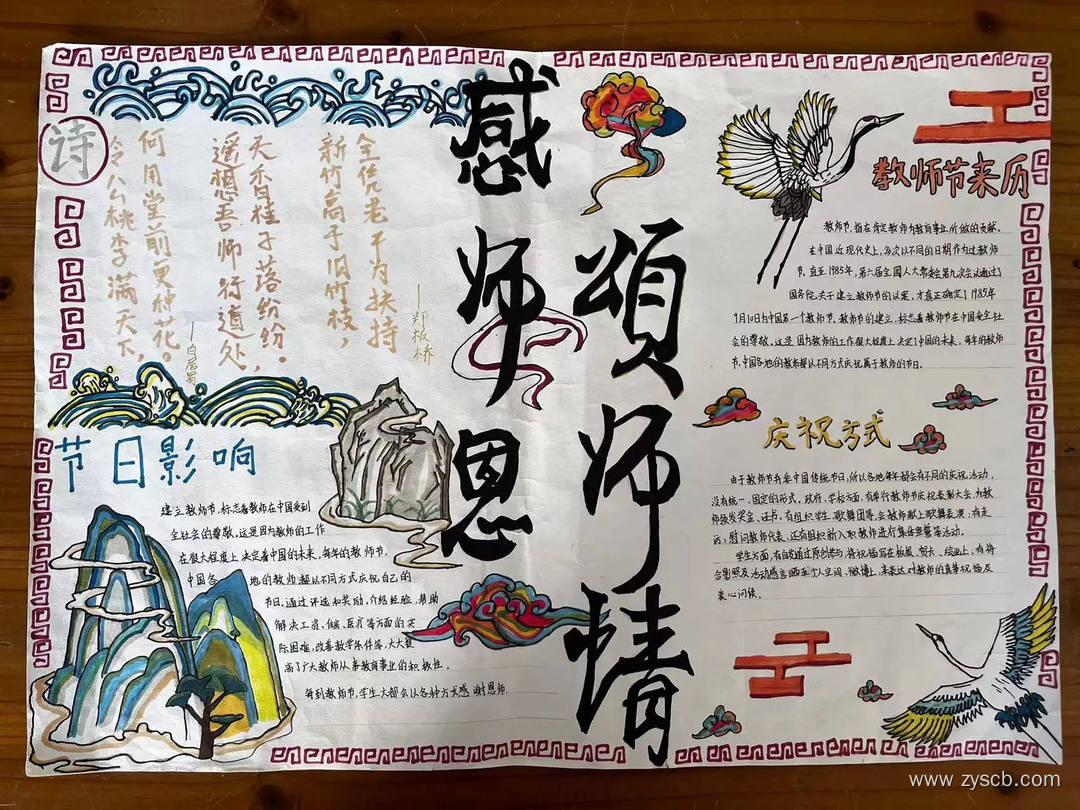 感师恩
颂师情
诗
新竹高于旧竹枝，
全凭老干为扶持
—郑板桥
遥想吾师行道处，
天香桂子落纷纷。
—白居易
令公桃李满天下，
何用堂前更种花。
节日影响
建立教师节，标志着教师在中国受到
全社会的尊敬，这是因为教师的工作
在很大程度上决定着中国的未来，每年的教师节，
中国各地的教师都以不同方式庆祝自己的
节日，通过评选和奖励，介绍经验，帮助
解决工资、住房、医疗等方面的实
际困难，改善教学条件等，大大提
高了广大教师从事教育事业的积极性。
每到教师节，学生大都会以各种方式感谢恩师.
教师节来历
教师节，旨在肯定教师为教育事业所做的贡献。
在中国近现代史上，多次以不同的日期作为过教师
节，直至1985年，第六届全国人大常委会第九次会议通过了
国务院关于建立教师节的议案，才真正确定了1985年
9月10日为中国第一个教师节，教师节的建立，标志着教师节在中国受全社
会的尊敬，这是因为教师的工作很大程度上决定了中国的未来，每年的教师
节，中国各地的教师都以不同方式庆祝属于教师的节日。
庆祝方式
由于教师节并非中国传统节日，所以各地每年都会有不同的庆祝活动，
没有统一、固定的形式，政府、学校方面，有举行教师节庆祝表彰大会，为教
师颁发奖金、证书，有组织学生、歌舞团等，会教师献上歌舞表演；有走
访；慰问教师代表，还有组织新入职教师进行集体宣誓等活动。
学生方面，有自发通过原创
将祝福写在板报、贺卡、绘画上；有将
合影照及活动感言晒至个人空间、微博上，来表达对教师的真挚祝福及
衷心问候。
www.zyscb.com